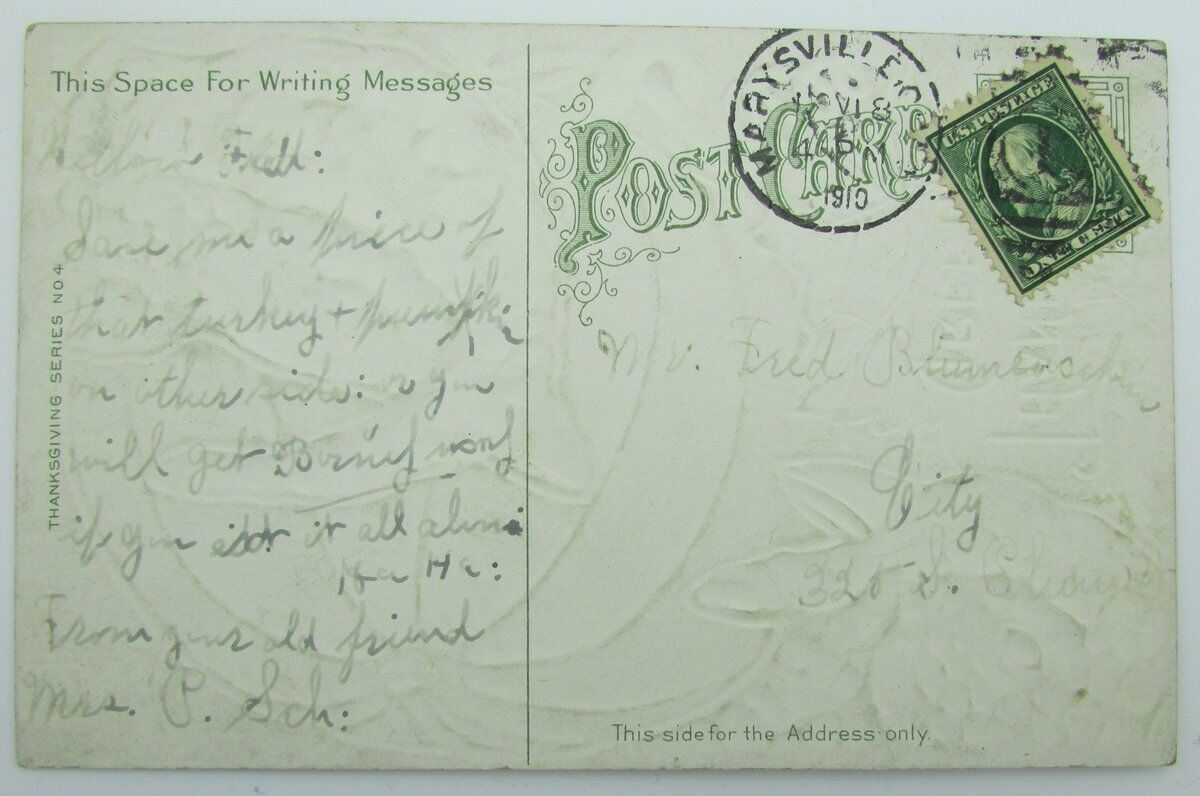 This Space For Writing Messages
Fred:
Save me a piece of
that turkey + pumpkin
on other side: or you
will get
if you eat it all alone
Ha Ha:
From your old friend
Mrs. P. Sch:
THANKSGIVING SERIES NO 4
POST CARD
MARYSVILLE, O
NOV 18
4
1910
U.S. POSTAGE
ONE CENT
Mr. Fred
City
320 S.
This side for the Address only.